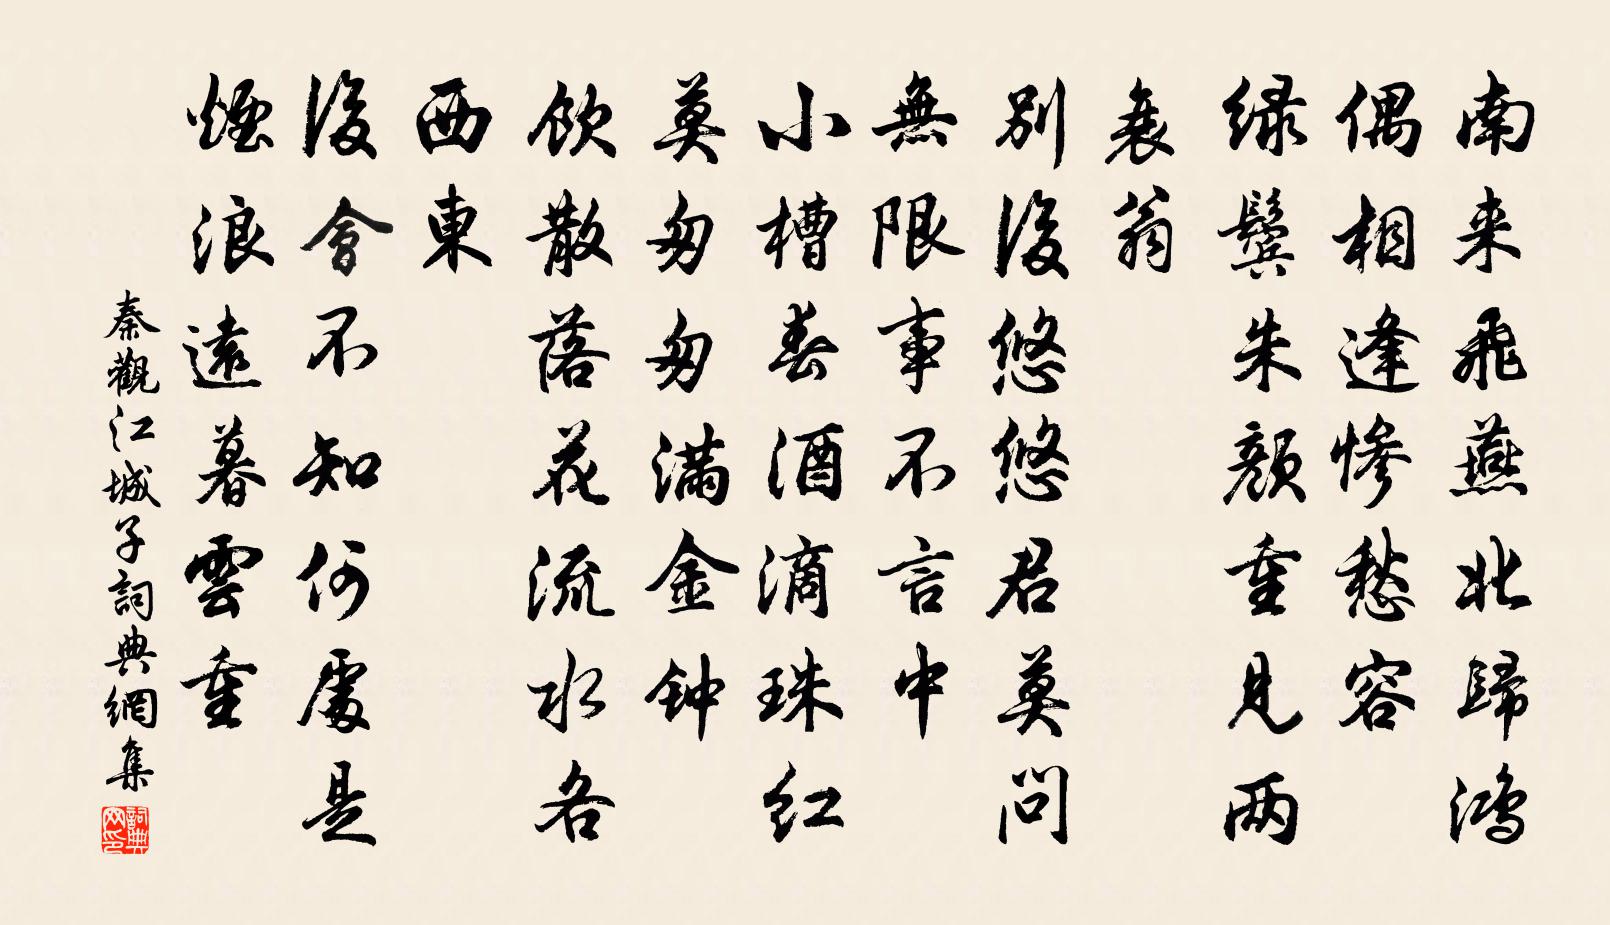 南来飛燕北歸鴻
偶相逢惨愁容
緑鬓朱颜重見两
衰翁
别後悠悠君莫問
無限事不言中
小槽春酒滴珠红
莫匆匆满金钟
飲散落花流水各
西東
後會不知何處是
煙浪遠暮雲重
秦觀江城子詞典網集
詞典网印